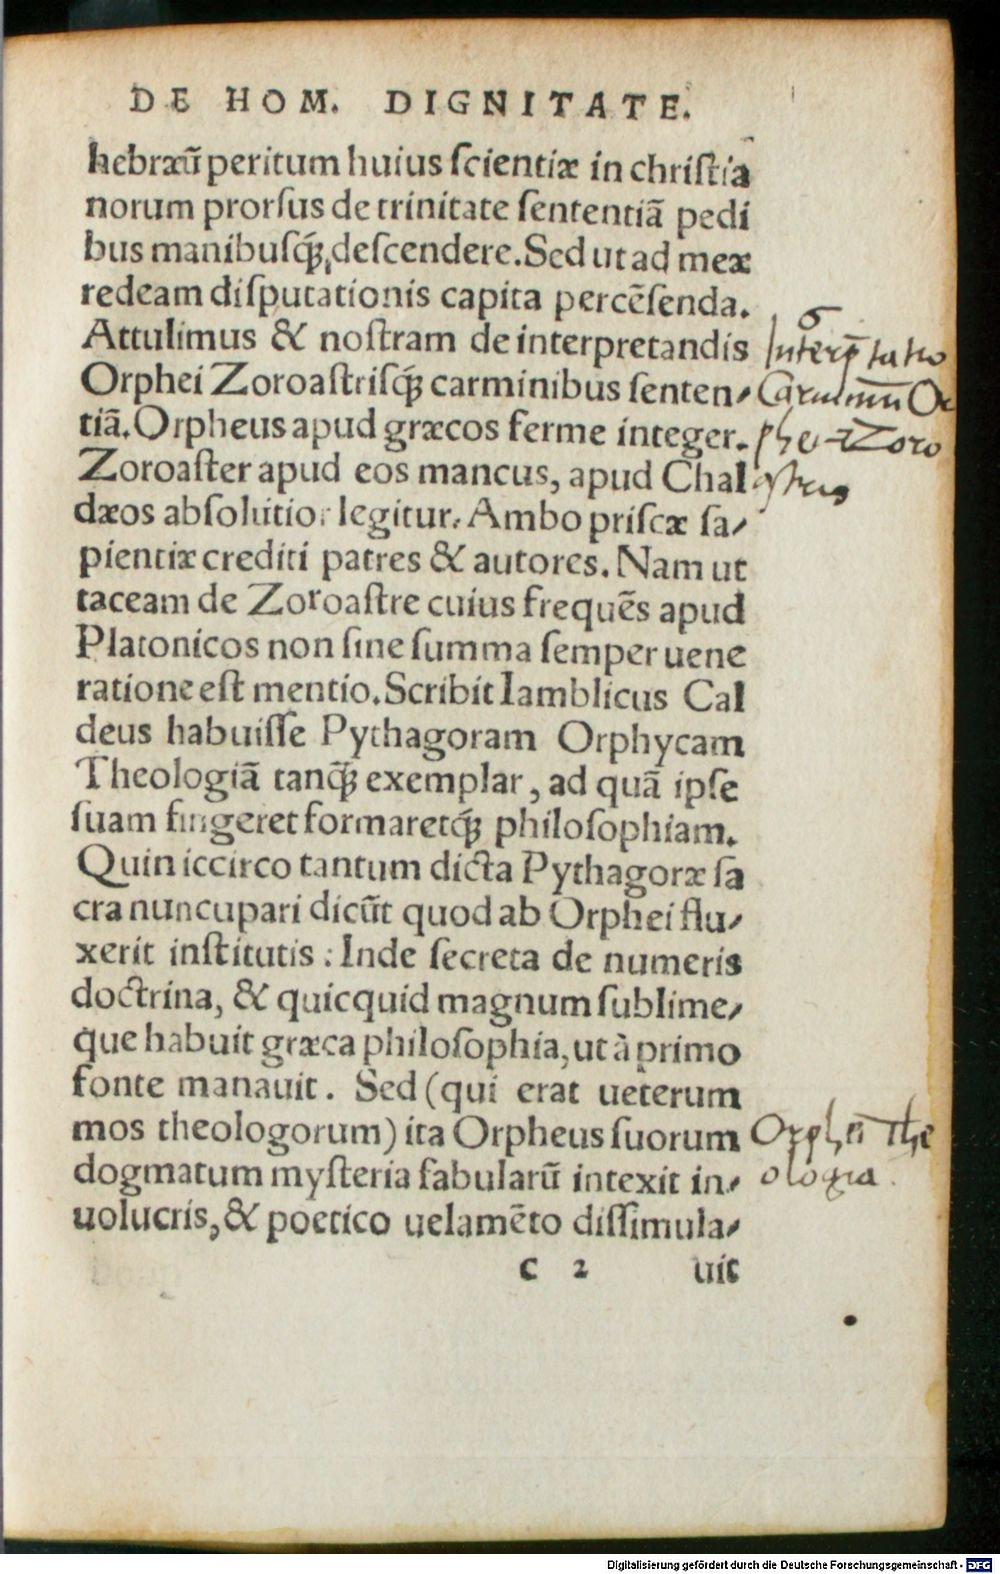 DE HOM. DIGNITATE.
hebræū peritum huius ſcientiæ in chriſtia
norum prorſus de trinitate ſententiā pedi
bus manibuſq́; deſcendere. Sed ut ad meæ
redeam diſputationis capita percēſenda.
Attulimus & noſtram de interpretandis
Orphei Zoroaſtriſq́; carminibus ſenten⸗
tiā. Orpheus apud græcos ferme integer.
Zoroaſter apud eos mancus, apud Chal
dæos abſolutior legitur. Ambo priſcæ ſa⸗
pientiæ crediti patres & autores. Nam ut
taceam de Zoroaſtre cuius frequēs apud
Platonicos non ſine ſumma ſemper uene
ratione eſt mentio. Scribit Iamblicus Cal
deus habuiſſe Pythagoram Orphycam
Theologiā tanq̄; exemplar, ad quā ipſe
ſuam fingeret formaretq́; philoſophiam.
Quin iccirco tantum dicta Pythagoræ ſa
cra nuncupari dicūt quod ab Orphei flu⸗
xerit inſtitutis: Inde ſecreta de numeris
doctrina, & quicquid magnum ſublime⸗
que habuit græca philoſophia, ut à primo
fonte manauit. Sed (qui erat ueterum
mos theologorum) ita Orpheus ſuorum
dogmatum myſteria fabularū intexit in⸗
uolucris, & poetico uelamēto diſſimula⸗
c 2 uit
6
Interp̄tatio
Carminū Or
phei & Zoro
astris
Orphei The
ologia.
Digitalisierung gefördert durch die Deutsche Forschungsgemeinschaft - DFG